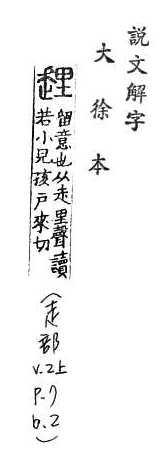 説文解字
大徐本
留意也从走里聲讀
若小兒孩戶來切
(走部
v.2上
P.7
b.2)